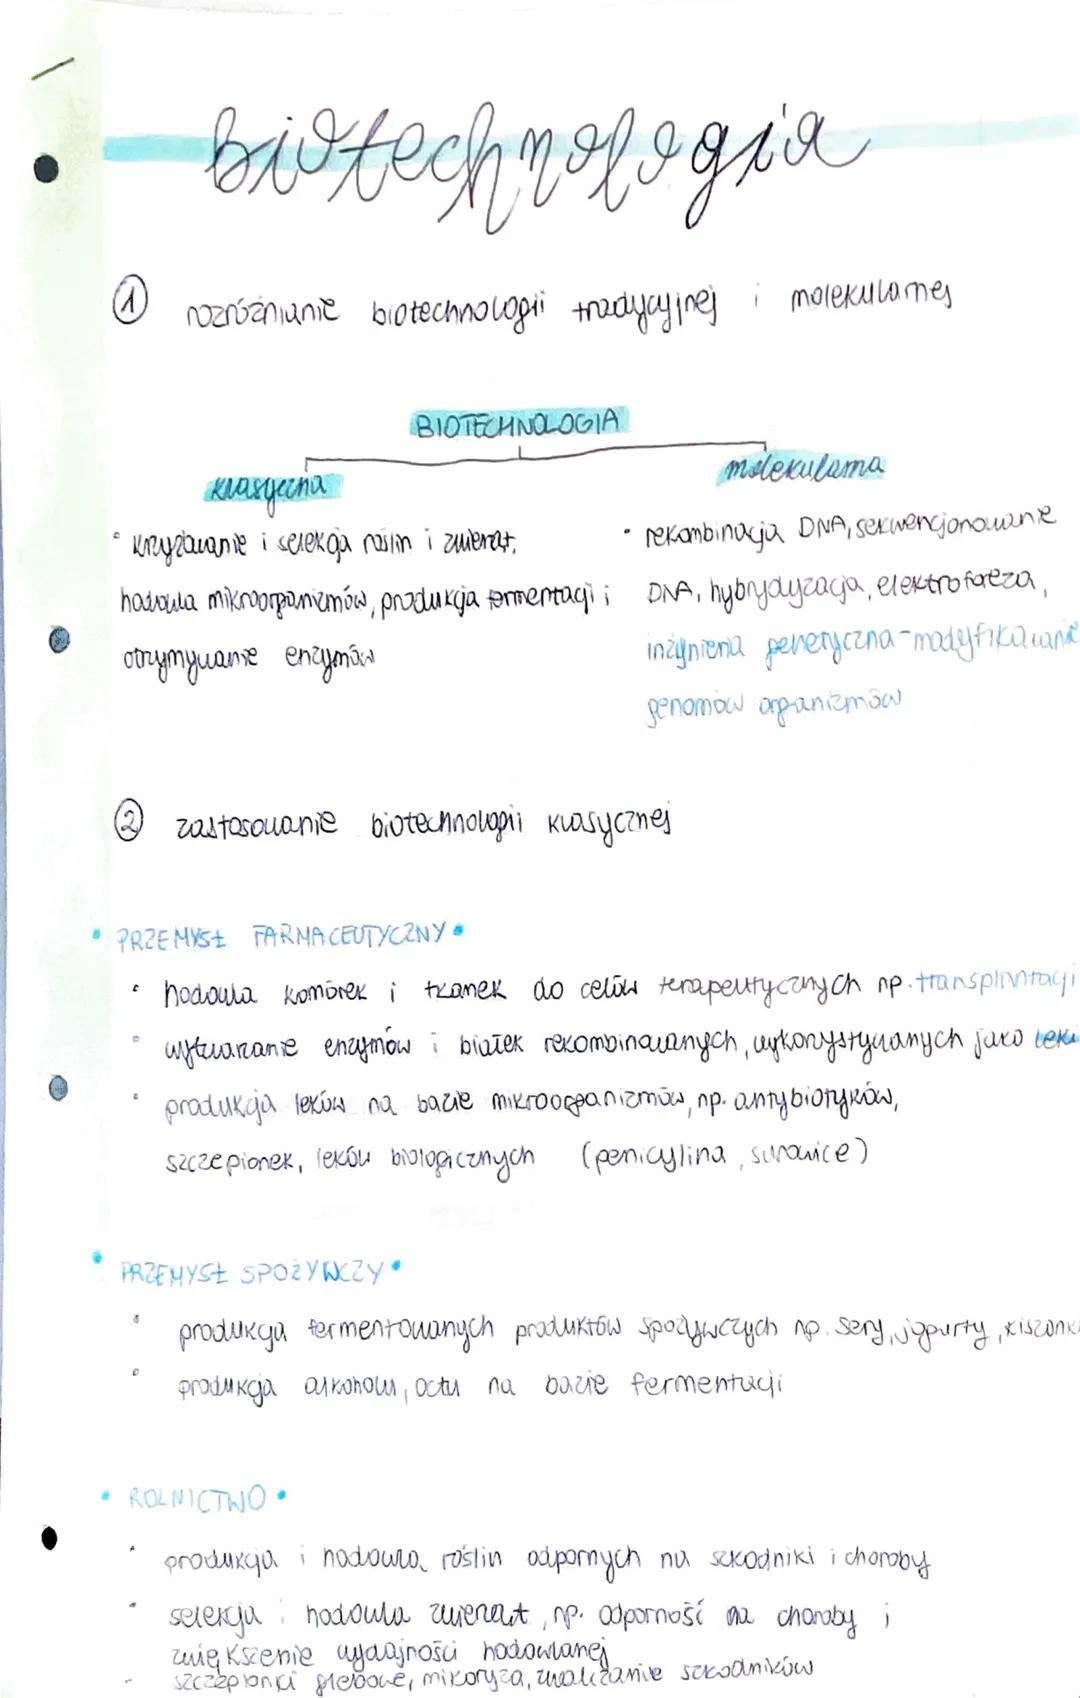 biotechnologia
① rozróżnianie biotechnologii tradycyjnej i molekularnej
BIOTECHNOLOGIA
klasyczna
molekularna
• krzyżowanie i selekcja roślin i zwierząt,
hodowla mikroorganizmów, produkcja fermentacji i
otrzymywanie enzymów
• rekombinacja DNA, sekwencjonowanie
DNA, hybrydyzacja, elektroforeza,
inżynieria genetyczna - modyfikowanie
genomów organizmów
② zastosowanie biotechnologii klasycznej
• PRZEMYSŁ FARMACEUTYCZNY •
• hodowla komórek i tkanek do celów terapeutycznych np. transplantacji
• wytwarzanie enzymów i białek rekombinowanych, wykorzystywanych jako leki
• produkcja leków na bazie mikroorganizmów, np. antybiotyków,
szczepionek, leków biologicznych (penicylina, surowice)
• PRZEMYSŁ SPOŻYWCZY •
• produkcja fermentowanych produktów spożywczych np. sery, jogurty, kiszonki
• produkcja alkoholu, octu na bazie fermentacji
• ROLNICTWO •
• produkcja i hodowla roślin odpornych na szkodniki i choroby
• selekcja i hodowla zwierząt, np. odporność na choroby i
zwiększenie wydajności hodowlanej
- szczepionki glebowe, mikoryza, zwalczanie szkodników